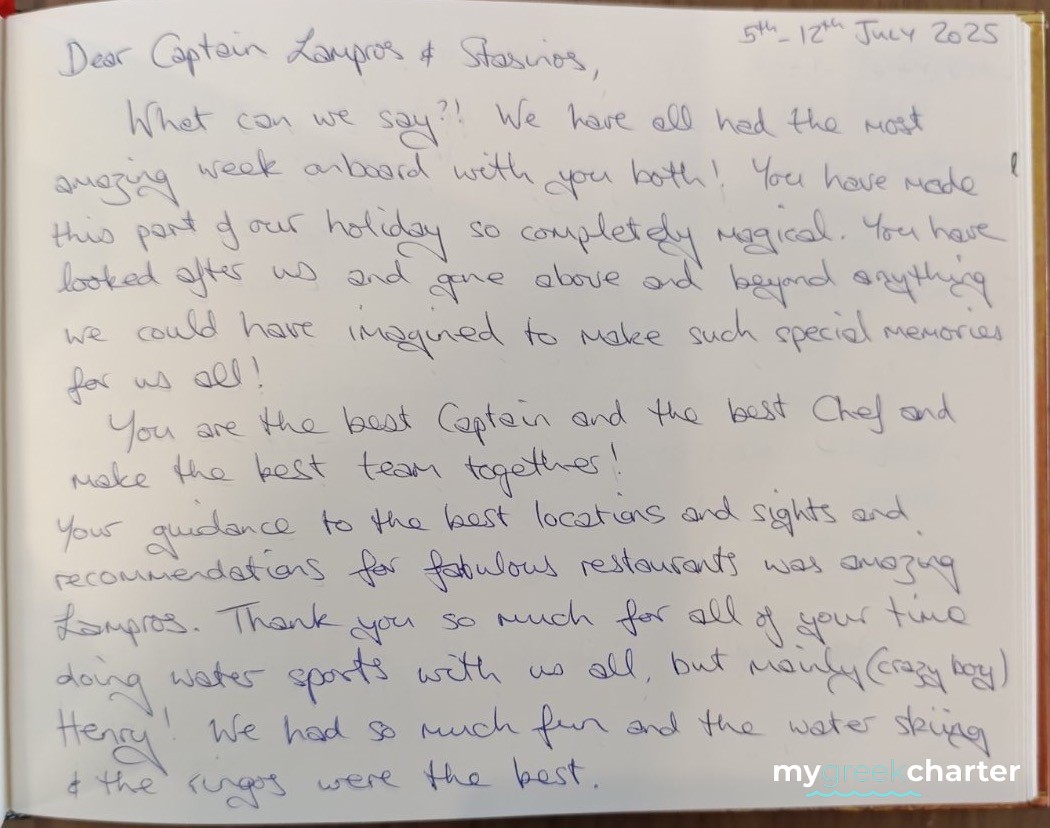 5th - 12th July 2025
Dear Captain Lampros & Stasinos,
What can we say?! We have all had the most
amazing week onboard with you both! You have made
this part of our holiday so completely magical. You have
looked after us and gone above and beyond anything
we could have imagined to make such special memories
for us all!
You are the best Captain and the best Chef and
make the best team together!
Your guidance to the best locations and sights and
recommendations for fabulous restaurants was amazing
Lampros. Thank you so much for all of your time
doing water sports with us all, but mainly (crazy boy)
Henry! We had so much fun and the water skiing
& the ringos were the best.
mygreekcharter